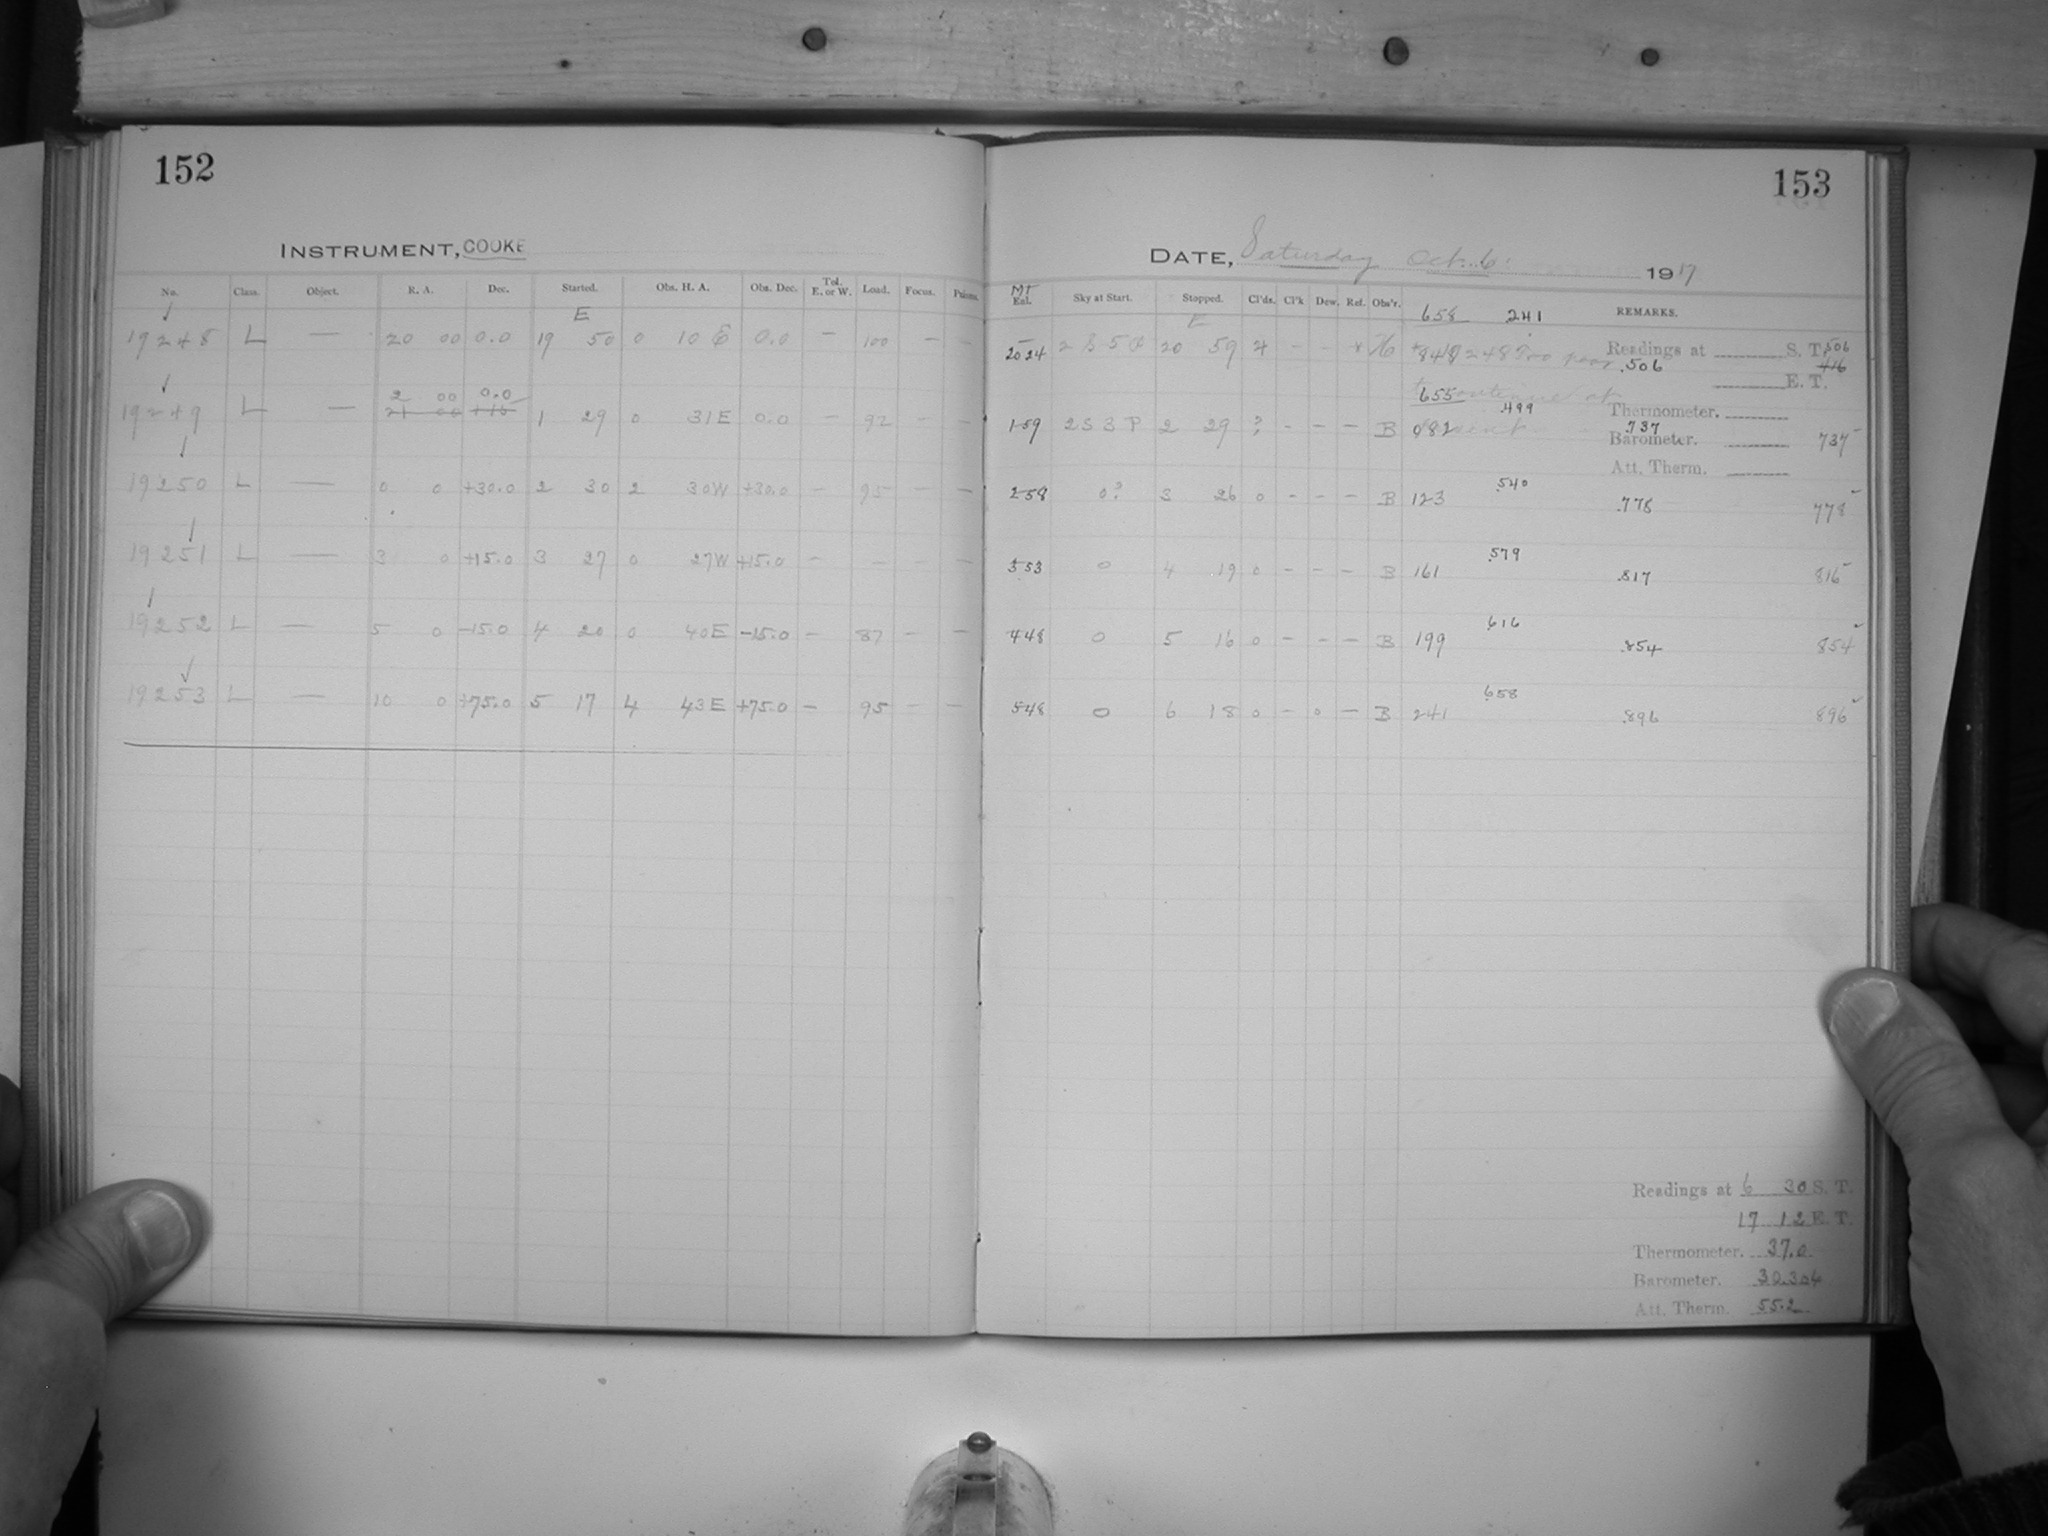 152
INSTRUMENT, COOKE
No. Class. Object. R. A. Dec. Started. Obs. H. A. Obs. Dec. Tel. E. or W. Load. Focus.
E
19248 L — 20 00 0.0 19 50 0 10 E 0.0 — 100 — —
2 00 0.0
19249 L — 21 00 +15 1 29 0 31E 0.0 — 92 — —
19250 L — 0 0 +30.0 2 30 2 30W +30.0 — 95 — —
19251 L — 3 0 +15.0 3 27 0 27W +15.0 — — — —
19252 L — 5 0 -15.0 4 20 0 40E -15.0 — 87 — —
19253 L — 10 0 +75.0 5 17 4 43E +75.0 — 95 — —
153
DATE, Saturday Oct. 6. 1917
MT
Enl. Sky at Start. Stopped. Cl'ds. Cl'k Dew. Ref. Obs'r. REMARKS.
658 241
E
2024 2 S 5 20 59 - -
Readings at S. T. 506
.506 416
E. T.
655
.499 Thermometer.
159 2 S 3 P 2 29 ? - - — B 082 .737
Barometer. 737
Att. Therm.
258 0? 3 26 0 - - — B 123 .540 .778 778
353 0 4 19 0 - - — B 161 .579 .817 816
448 0 5 16 0 - - — B 199 .616 .854 854
548 0 6 18 0 - 0 — B 241 .658 .896 896
Readings at 6 30 S. T.
17 12 E. T.
Thermometer. 37.0
Barometer. 30.304
Att. Therm. 55.2